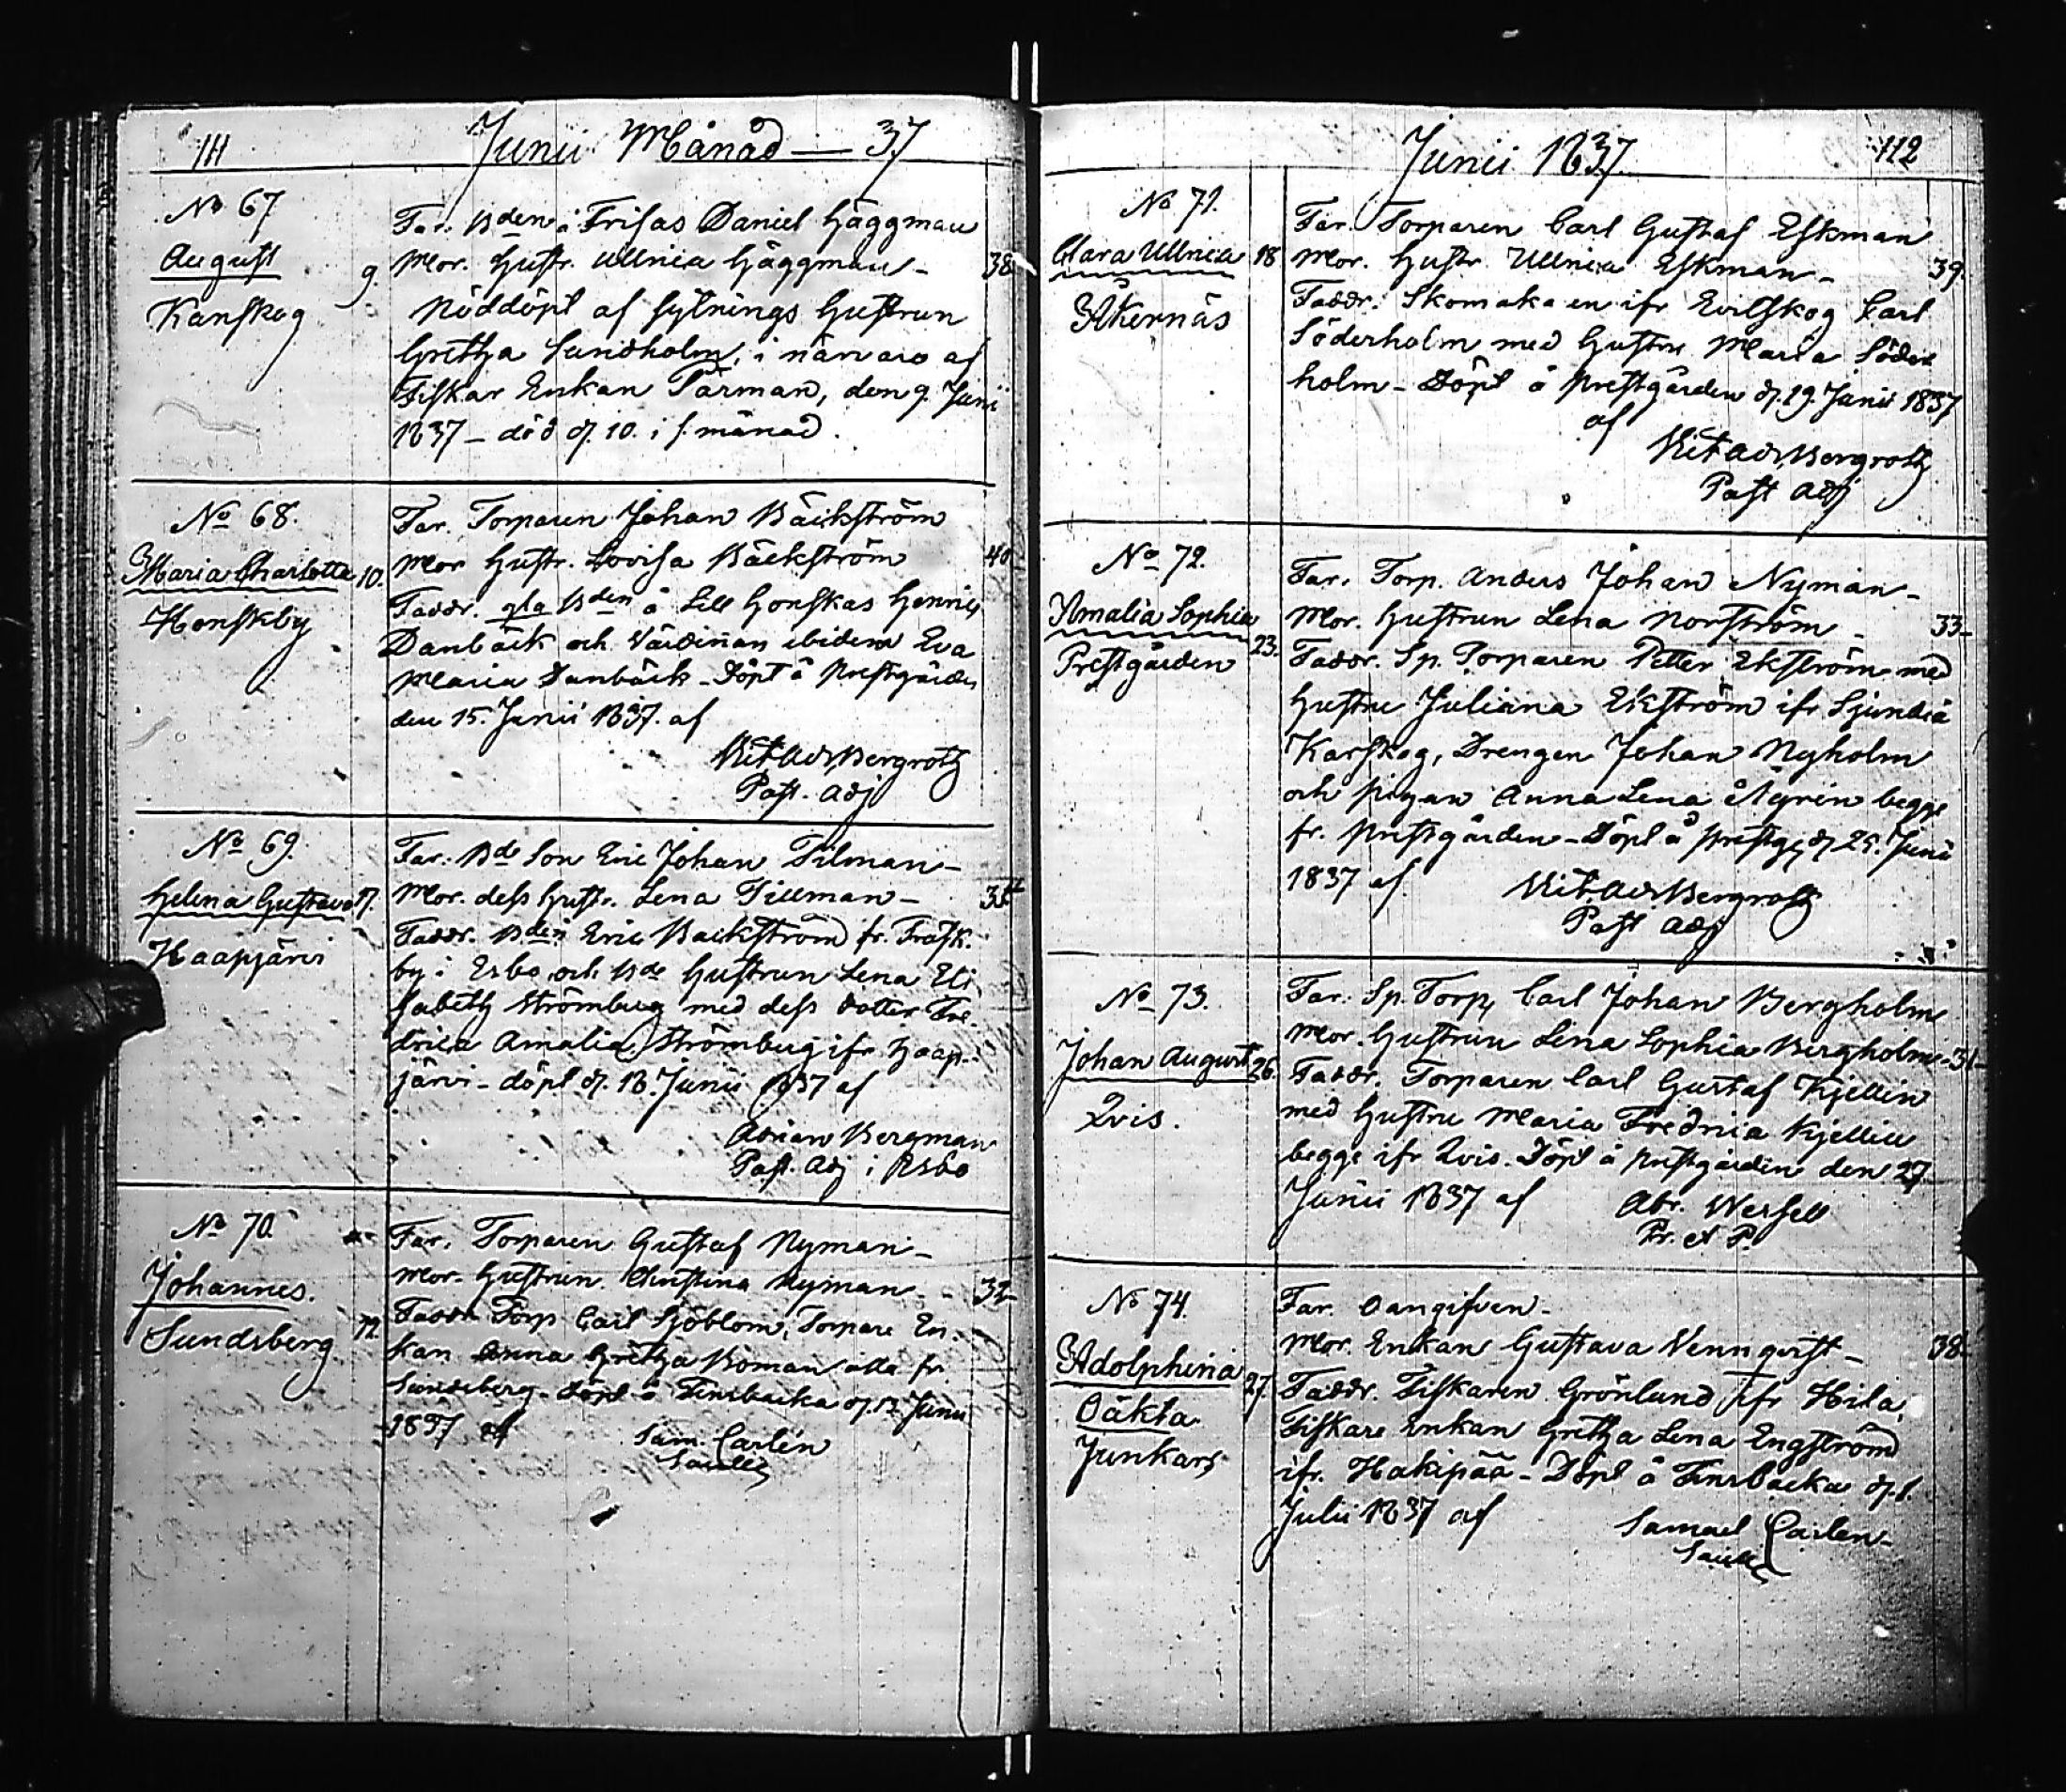 111
Junii Månad — 37
No 67
August
Kanskog
9.
Far. Bden i Frisas Daniel Häggman
Mor. Hustr. Ullrica Häggman -
38
Nöddöpt af sytnings Hustrun
Gretha Sundholm, i närvaro af
Fiskar Enkan Tärman, den 9. Junii
1837 - död d. 10. i s. månad.
No 68.
Maria Charlotta
Honskby
10.
Far. Torparen Johan Bäckström
Mor Hustr. Lovisa Bäckström
40
Faddr. gla Bden å Lill Honskas Henric
Danbäck och Värdinan ibidem Eva
Maria Danbäck - Döpt å Prestgården
den 15. Junii 1837. af
Bergroth
Past. Adj
No 69.
Helena Gustava
Haapjärvi
17.
Far. Bde Son Eric Johan Tilman -
Mor. dess Hustr. Lena Tillman -
35
Faddr. Bden Eric Backström fr. Träsk-
by i Esbo och Bde Hustrun Lena Eli
sabeth Strömberg med dess dotter Fre-
drica Amalia Strömberg ifr Haap-
järvi - döpt d. 18. Junii 1837 af
Adrian Bergman
Past. Adj i Esbo
No 70.
Johannes.
Sundsberg
12
Far. Torparen Gustaf Nyman -
Mor. Hustrun Christina Nyman -
32
Faddr. Torp Carl Sjöblom, Torpare En-
kan Anna Gretha Boman alla fr.
Sundsberg - Döpt å Finsbacka d. Junii
1837 af
Sam. Carlén
112
Junii 1837.
No 71.
Clara Ullrica
Åkernäs
18
Far. Torparen Carl Gustaf Eskman
Mor. Hustr. Ullrica Eskman -
39.
Faddr. Skomakaren ifr Evitskog Carl
Söderholm med Hustru Maria Söder
holm - Döpt å Prestgården d. 19. Junii 1837
af
Bergroth
Past Adj
No 72.
Amalia Sophia
Prestgården
23.
Far. Torp. Anders Johan Nyman -
Mor. Hustrun Lena Norström -
33-
Faddr. Sp. Torparen Petter Ekström med
Hustru Juliana Ekström ifr Sjundeå
Karskog, Drengen Johan Nyholm
och pigan Anna Lena Nyrén begge
fr. Prestgården - Döpt å Prestg. d 25. Junii
1837 af
Bergroth
Past Adj
No 73.
Johan August
Qvis.
26.
Far. Sp. Torp. Carl Johan Bergholm
Mor. Hustrun Lena Sophia Bergholm - 31-
Faddr. Torparen Carl Gustaf Kjellin
med Hustru Maria Fredrica Kjellin
begge ifr Qvis. Döpt å Prestgården den 27
Junii 1837 af
Abr. Wessell
Pr. et P.
No 74.
Adolphina
Oäkta
Junkars
27.
Far. Oangifven -
Mor. Enkan Gustava Wennqvist -
38-
Faddr. Fiskaren Grönlund ifr Hila,
Fiskare Enkan Gretha Lena Engström
ifr. Hakipää - Döpt å Finsbacka d. 1.
Julii 1837 af
Samuel Carlén -